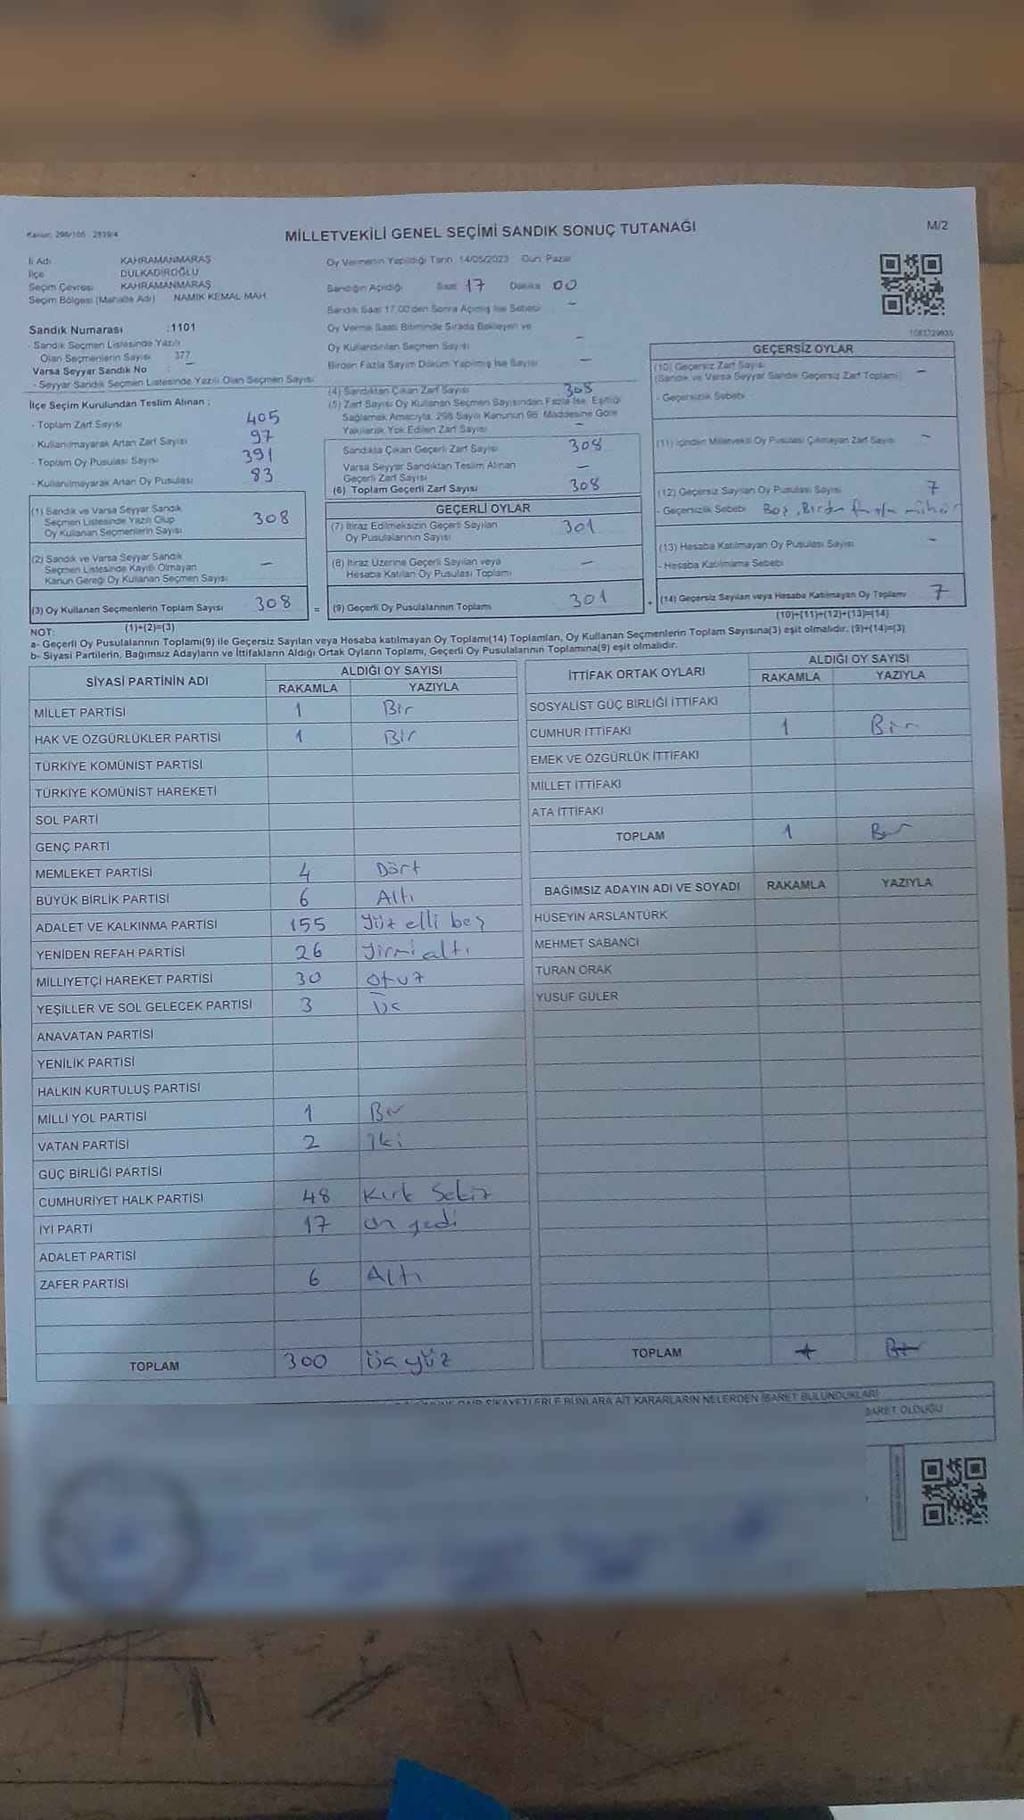 Kanun: 298/105 - 2839/4
MİLLETVEKİLİ GENEL SEÇİMİ SANDIK SONUÇ TUTANAĞI
M/2
İl Adı KAHRAMANMARAŞ
İlçe DULKADİROĞLU
Seçim Çevresi KAHRAMANMARAŞ
Seçim Bölgesi (Mahalle Adı) NAMIK KEMAL MAH
Sandık Numarası :1101
- Sandık Seçmen Listesinde Yazılı
Olan Seçmenlerin Sayısı 377
Varsa Seyyar Sandık No : –
- Seyyar Sandık Seçmen Listesinde Yazılı Olan Seçmen Sayısı
İlçe Seçim Kurulundan Teslim Alınan :
- Toplam Zarf Sayısı 405
- Kullanılmayarak Artan Zarf Sayısı 97
- Toplam Oy Pusulası Sayısı 391
- Kullanılmayarak Artan Oy Pusulası 83
(1) Sandık ve Varsa Seyyar Sandık
Seçmen Listesinde Yazılı Olup
Oy Kullanan Seçmenlerin Sayısı 308
(2) Sandık ve Varsa Seyyar Sandık
Seçmen Listesinde Kayıtlı Olmayan
Kanun Gereği Oy Kullanan Seçmen Sayısı –
(3) Oy Kullanan Seçmenlerin Toplam Sayısı 308 =
(1)+(2)=(3)
Oy Vermenin Yapıldığı Tarih: 14/05/2023 Gün: Pazar
Sandığın Açıldığı Saat 17 Dakika 00
Sandık Saat 17.00'den Sonra Açılmış İse Sebebi –
Oy Verme Saati Bitiminde Sırada Bekleyen ve
Oy Kullandırılan Seçmen Sayısı –
Birden Fazla Sayım Döküm Yapılmış İse Sayısı –
(4) Sandıktan Çıkan Zarf Sayısı 308
(5) Zarf Sayısı Oy Kullanan Seçmen Sayısından Fazla İse, Eşitliği
Sağlamak Amacıyla, 298 Sayılı Kanunun 98. Maddesine Göre
Yakılarak Yok Edilen Zarf Sayısı –
Sandıkta Çıkan Geçerli Zarf Sayısı 308
Varsa Seyyar Sandıktan Teslim Alınan
Geçerli Zarf Sayısı –
(6) Toplam Geçerli Zarf Sayısı 308
GEÇERLİ OYLAR
(7) İtiraz Edilmeksizin Geçerli Sayılan
Oy Pusulalarının Sayısı 301
(8) İtiraz Üzerine Geçerli Sayılan veya
Hesaba Katılan Oy Pusulası Toplamı –
(9) Geçerli Oy Pusulalarının Toplamı 301 +
1083729835
GEÇERSİZ OYLAR
(10) Geçersiz Zarf Sayısı –
(Sandık ve Varsa Seyyar Sandık Geçersiz Zarf Toplamı)
- Geçersizlik Sebebi
(11) İçinden Milletvekili Oy Pusulası Çıkmayan Zarf Sayısı –
(12) Geçersiz Sayılan Oy Pusulası Sayısı 7
- Geçersizlik Sebebi Boş, Birden fazla mühür
(13) Hesaba Katılmayan Oy Pusulası Sayısı –
- Hesaba Katılmama Sebebi
(14) Geçersiz Sayılan veya Hesaba Katılmayan Oy Toplamı 7
(10)+(11)+(12)+(13)=(14)
NOT:
a- Geçerli Oy Pusulalarının Toplamı(9) ile Geçersiz Sayılan veya Hesaba katılmayan Oy Toplamı(14) Toplamları, Oy Kullanan Seçmenlerin Toplam Sayısına(3) eşit olmalıdır. (9)+(14)=(3)
b- Siyasi Partilerin, Bağımsız Adayların ve İttifakların Aldığı Ortak Oyların Toplamı, Geçerli Oy Pusulalarının Toplamına(9) eşit olmalıdır.
SİYASİ PARTİNİN ADI ALDIĞI OY SAYISI
RAKAMLA YAZIYLA
MİLLET PARTİSİ 1 Bir
HAK VE ÖZGÜRLÜKLER PARTİSİ 1 Bir
TÜRKİYE KOMÜNİST PARTİSİ
TÜRKİYE KOMÜNİST HAREKETİ
SOL PARTİ
GENÇ PARTİ
MEMLEKET PARTİSİ 4 Dört
BÜYÜK BİRLİK PARTİSİ 6 Altı
ADALET VE KALKINMA PARTİSİ 155 Yüz elli beş
YENİDEN REFAH PARTİSİ 26 Yirmi altı
MİLLİYETÇİ HAREKET PARTİSİ 30 Otuz
YEŞİLLER VE SOL GELECEK PARTİSİ 3 Üç
ANAVATAN PARTİSİ
YENİLİK PARTİSİ
HALKIN KURTULUŞ PARTİSİ
MİLLİ YOL PARTİSİ 1 Bir
VATAN PARTİSİ 2 İki
GÜÇ BİRLİĞİ PARTİSİ
CUMHURİYET HALK PARTİSİ 48 Kırk Sekiz
İYİ PARTİ 17 On yedi
ADALET PARTİSİ
ZAFER PARTİSİ 6 Altı
TOPLAM 300 Üç yüz
İTTİFAK ORTAK OYLARI ALDIĞI OY SAYISI
RAKAMLA YAZIYLA
SOSYALİST GÜÇ BİRLİĞİ İTTİFAKI
CUMHUR İTTİFAKI 1 Bir
EMEK VE ÖZGÜRLÜK İTTİFAKI
MİLLET İTTİFAKI
ATA İTTİFAKI
TOPLAM 1 Bir
BAĞIMSIZ ADAYIN ADI VE SOYADI RAKAMLA YAZIYLA
HÜSEYİN ARSLANTÜRK
MEHMET SABANCI
TURAN ORAK
YUSUF GÜLER
TOPLAM
ŞİKAYETLERLE BUNLARA AİT KARARLARIN NELERDEN İBARET BULUNDUKLARI
İBARET OLDUĞU